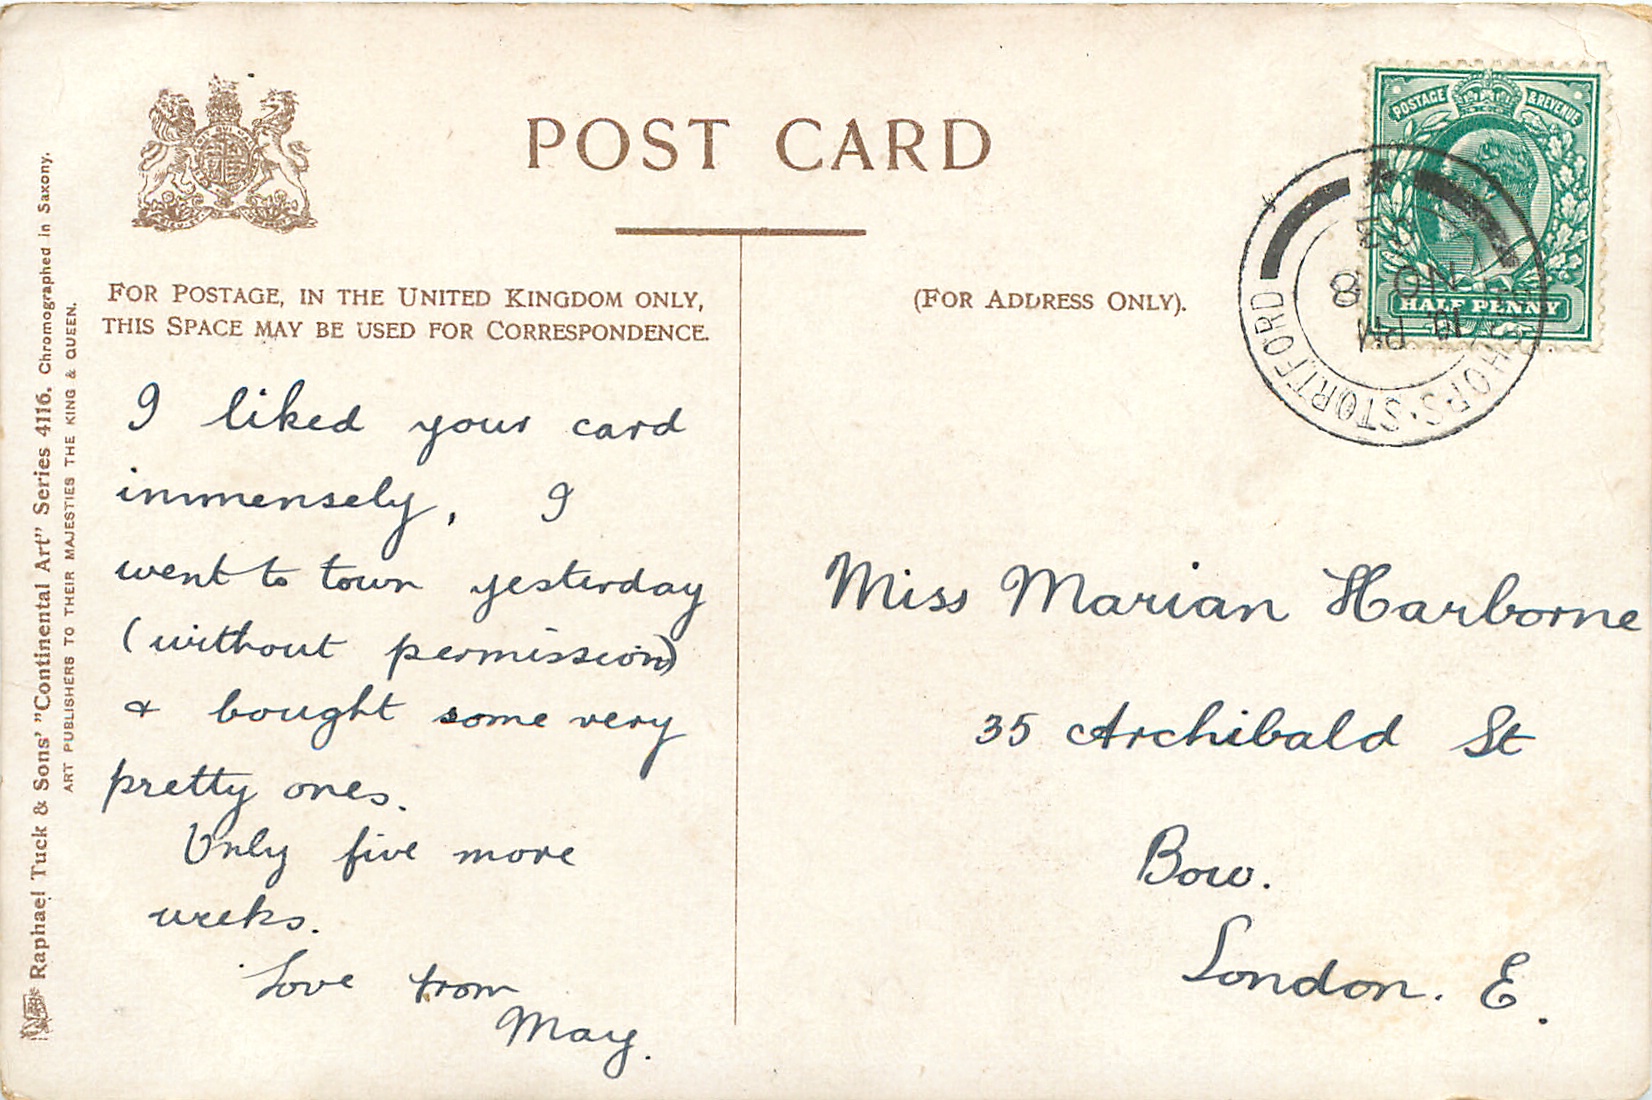 POST CARD
FOR POSTAGE, IN THE UNITED KINGDOM ONLY,
THIS SPACE MAY BE USED FOR CORRESPONDENCE.
(FOR ADDRESS ONLY).
I liked your card
immensely, I
went to town yesterday
(without permission)
& bought some very
pretty ones.
Only five more
weeks.
Love from
May.
Miss Marian Harborne
35 Archibald St
Bow.
London. E.
Raphael Tuck & Sons' "Continental Art" Series 4116. Chromographed in Saxony.
ART PUBLISHERS TO THEIR MAJESTIES THE KING & QUEEN.
POSTAGE & REVENUE
HALF PENNY
BISHOPS·STORTFORD
PM
NO 8